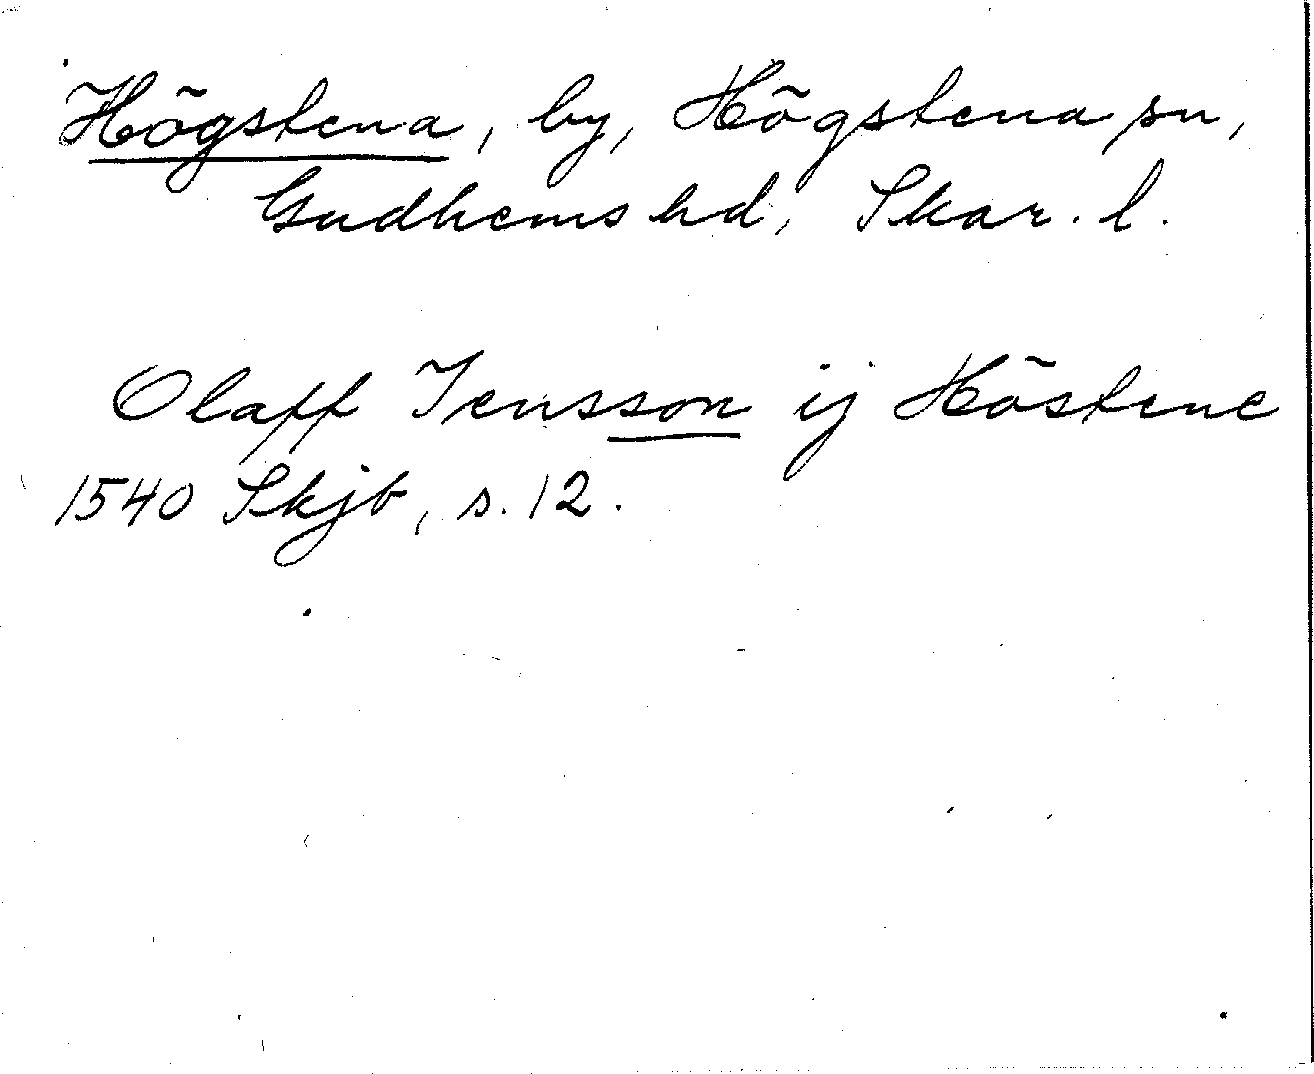 Högstena, by, Högstena sn,
Gudhems hd, Skar. l.
Olaff Jensson ij Höstene
1540 Skjb, s. 12.